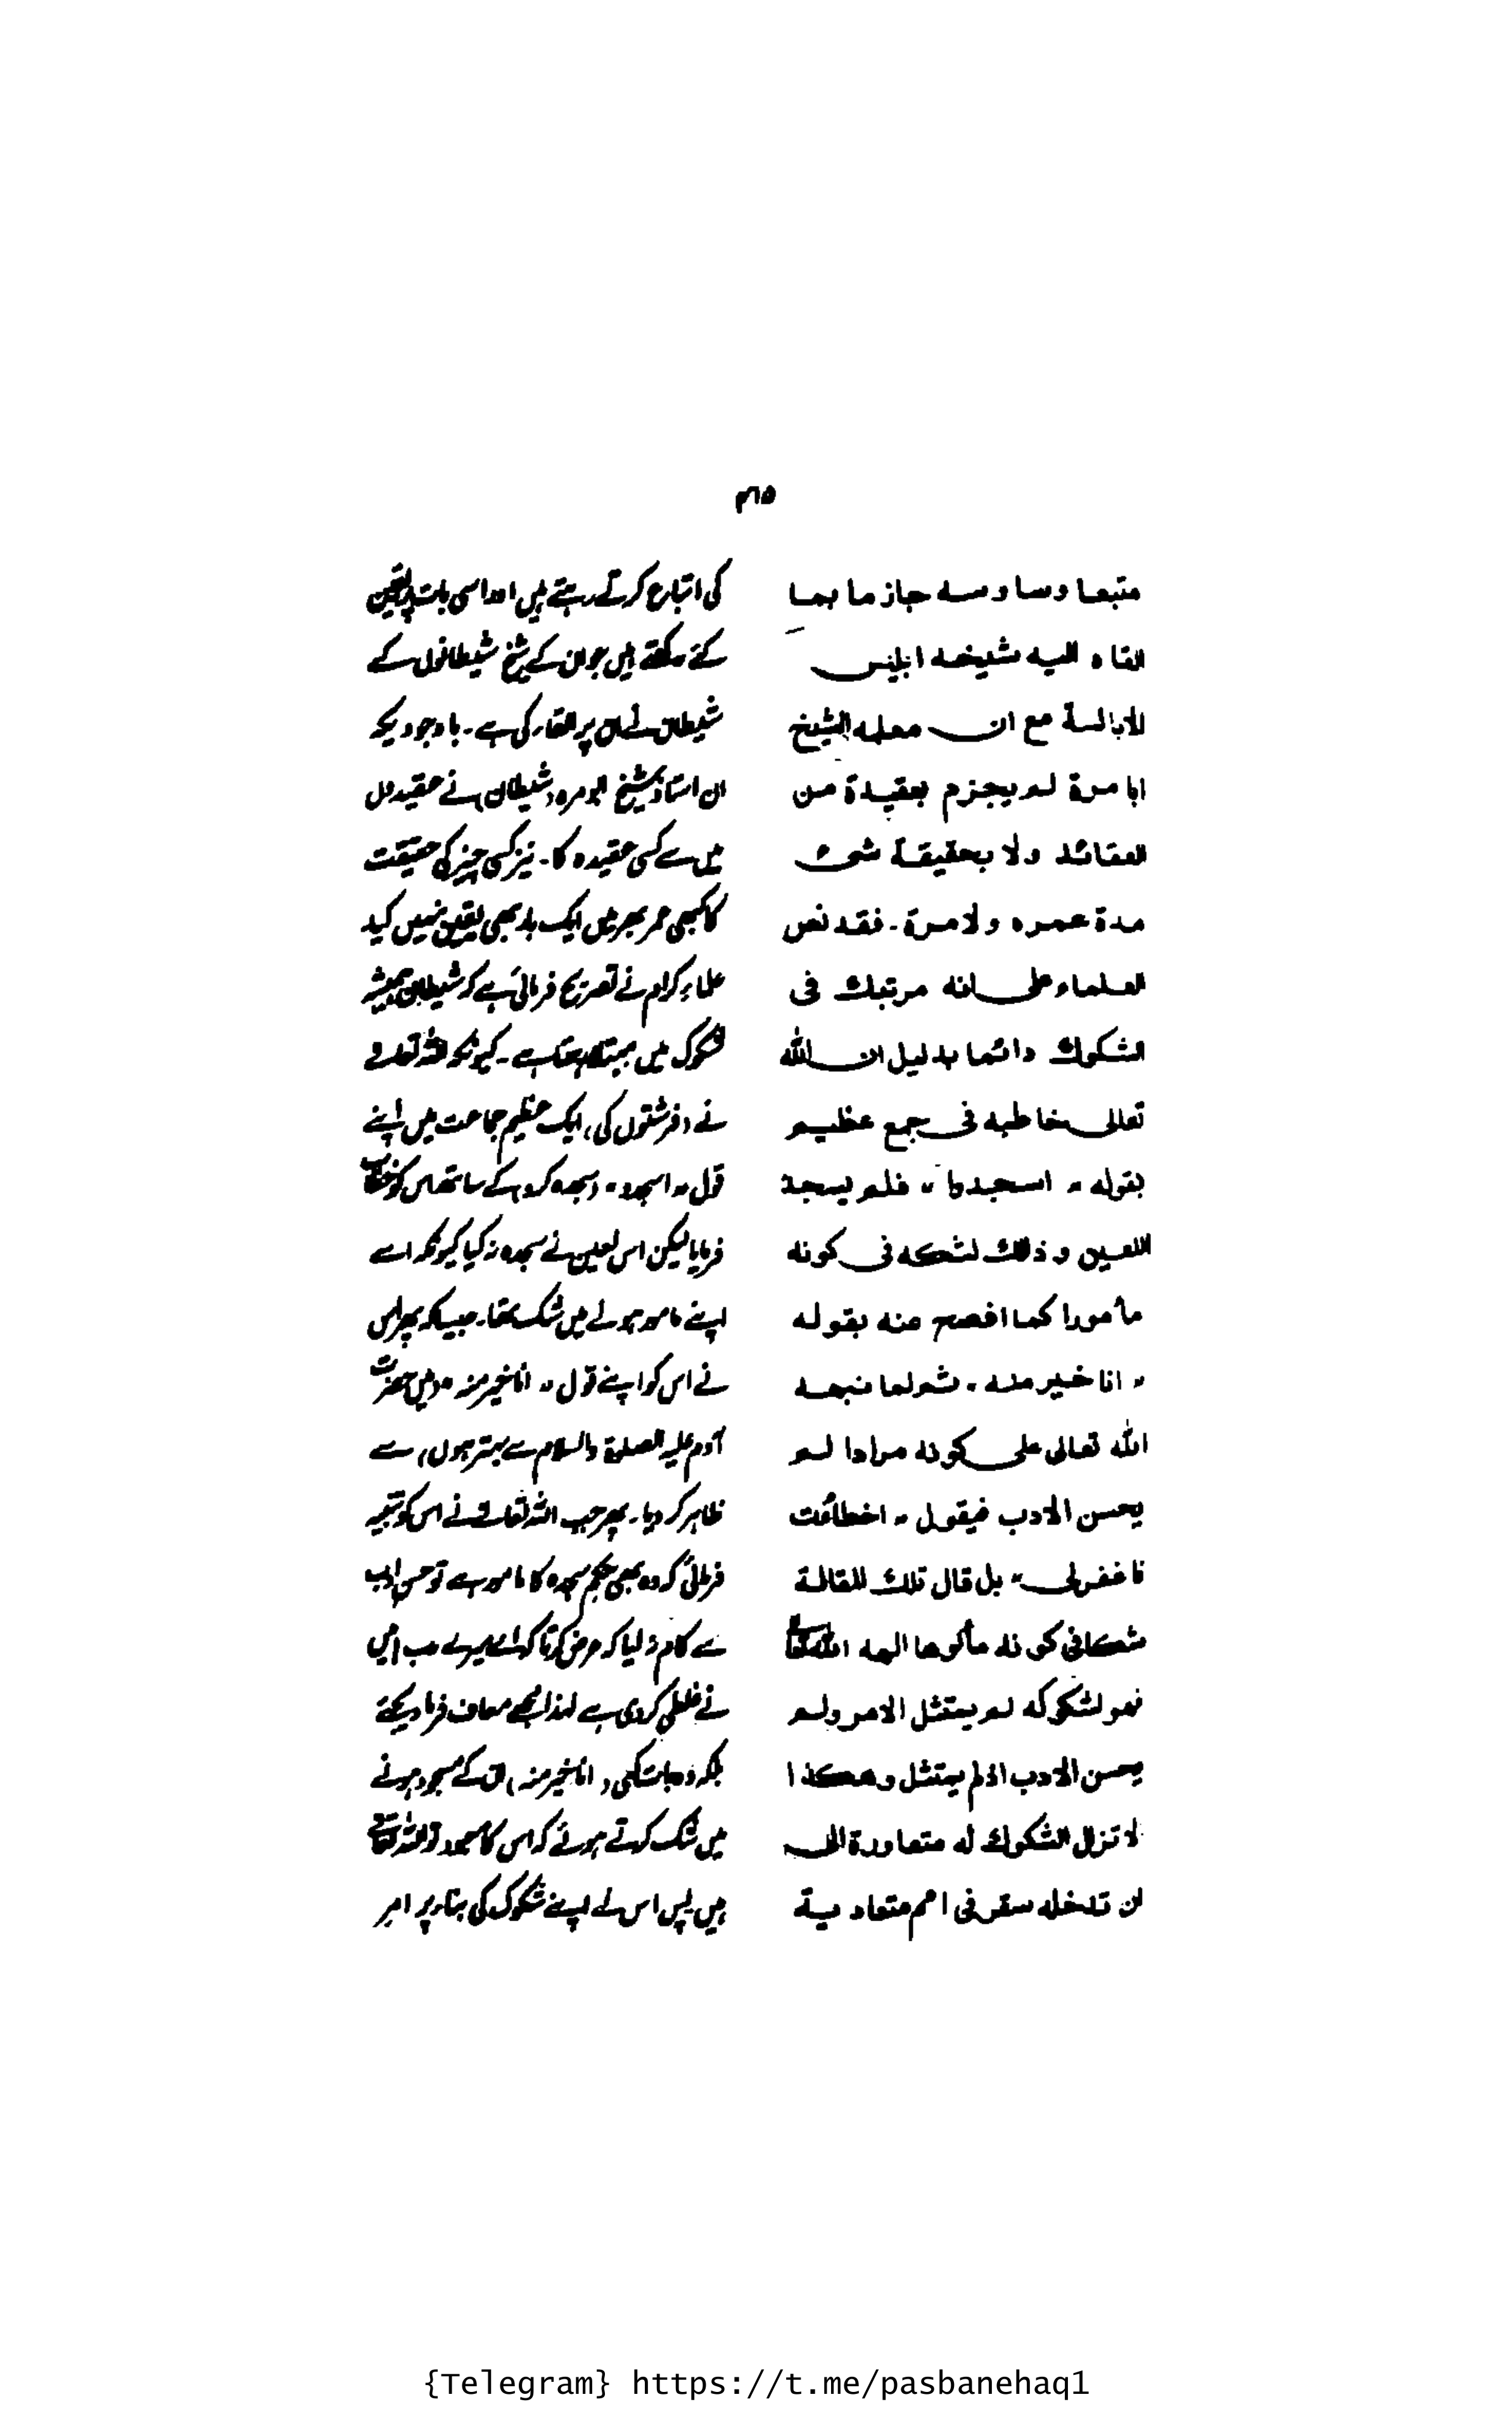 ٣١٥
متبعا وساوسه جازما بما
القاه اليه شيخه ابليس
الابالسة مع ان معلمه الشيخ
ابا مرة لم يجزم بعقيدة من
العقائد ولا بحقيقة شئ
مدة عمره ولا مرة۔ فقد نص
العلماء على انه مرتبك فى
الشكوك دائما بدليل ان الله
تعالى خاطبه فى جمع عظيم
بقوله " اسجدوا " فلم يسجد
اللعين و ذلك لشكه فى كونه
مأمورا كما افصح عنه بقوله
" انا خير منه " ثم لما نبهه
الله تعالى على كونه مرادا لم
يحسن الادب فيقول " اخطأت
فاغفرلى " بل قال تلك المقالة
شكا فى كونه مألوها الهه الله تعالى
فهو لشكوكه لم يمتثل الامر ولم
يحسن الادب اذ لم يمتثل وهكذا
لا تزال الشكوك له متعاودة الى
ان تدخله سقر فى امم متعادية
کی اتباع کرتے رہتے ہیں اور اسی بات پر یقین
کئے رکھتے ہیں جو ان کے شیخ شیطانوں کے
شیطان نے ان پر القاء کی ہے۔ باوجودیکہ
ان استاد شیخ ابو مرہ (شیطان) نے عقیدوں
میں سے کسی عقیدہ کا۔ نیز کسی چیز کی حقیقت
کا کبھی عمر بھر میں ایک بار بھی یقین نہیں کیا۔
علماء کرام نے تصریح فرمائی ہے کہ شیطان ہمیشہ
شکوک میں مبتلا رہتا ہے۔ کیونکہ اللہ تعالے
نے (فرشتوں کی) ایک عظیم جماعت میں اپنے
قول " اسجدو " (سجدہ کرو) کے ساتھ اس کو خطاب
فرمایا لیکن اس لعین نے سجدہ نہ کیا کیونکہ اسے
اپنے مامور ہونے میں شک تھا۔ جیسا کہ پھر اس
نے اس کو اپنے قول " انا خیر منہ " (میں حضرت
آدم علیہ الصلوۃ والسلام سے بہتر ہوں) سے
ظاہر کر دیا۔ پھر جب اللہ تعالے نے اس کو تنبیہ
فرمائی کہ وہ بھی حکم سجدہ کا مامور ہے تو حسن ادب
سے کام نہ لیا کہ عرض کرتا کہ اے میرے رب! میں
نے غلطی کر دی ہے لہذا مجھے معاف فرما دیجئے
بلکہ وہ بات کہی (انا خیر منہ) ان کے مسجود ہونے
میں شک کرتے ہوئے کہ اس کا معبود تو اللہ تعالے
ہیں پس اس نے اپنے شکوک کی بناء پر امر
{Telegram} https://t.me/pasbanehaq1